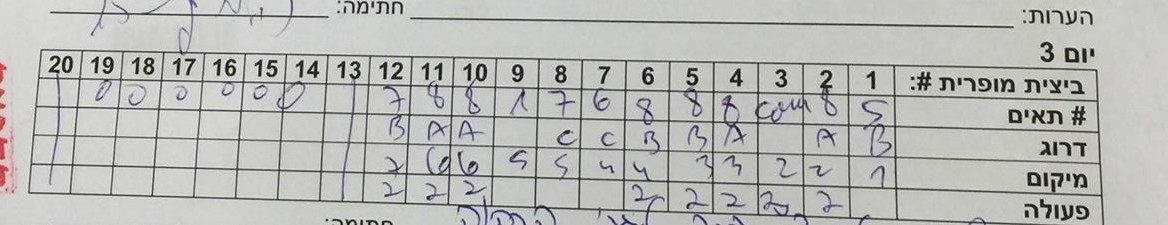 הערות: חתימה:
יום 3
ביצית מופרית #: 1 2 3 4 5 6 7 8 9 10 11 12 13 14 15 16 17 18 19 20
# תאים 5 8 com 8 8 8 6 7 1 8 8 7 0 0 0 0 0 0
דרוג B A A B B C C A A B
מיקום 1 2 2 3 3 4 4 5 5 6 6 7
פעולה 2 2 2 2 2 2 2 2
חתימה: